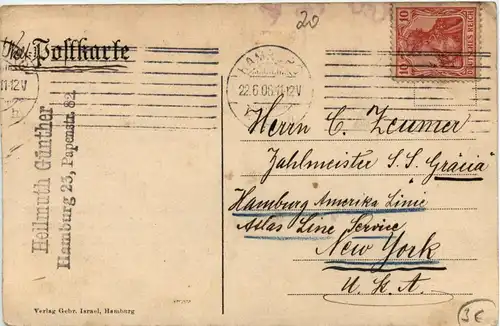 20
Postkarte
10 10
DEUTSCHES REICH
HAMBURG
22.6.06.11-12V
11-12V
Hellmuth Günther
Hamburg 23, Papenstr. 82
Herrn C. Zeumer
Zahlmeister S.S. Gräcia
Hamburg Amerika Linie
Atlas Line Service
New York
U.S.A.
Verlag Gebr. Israel, Hamburg
3€